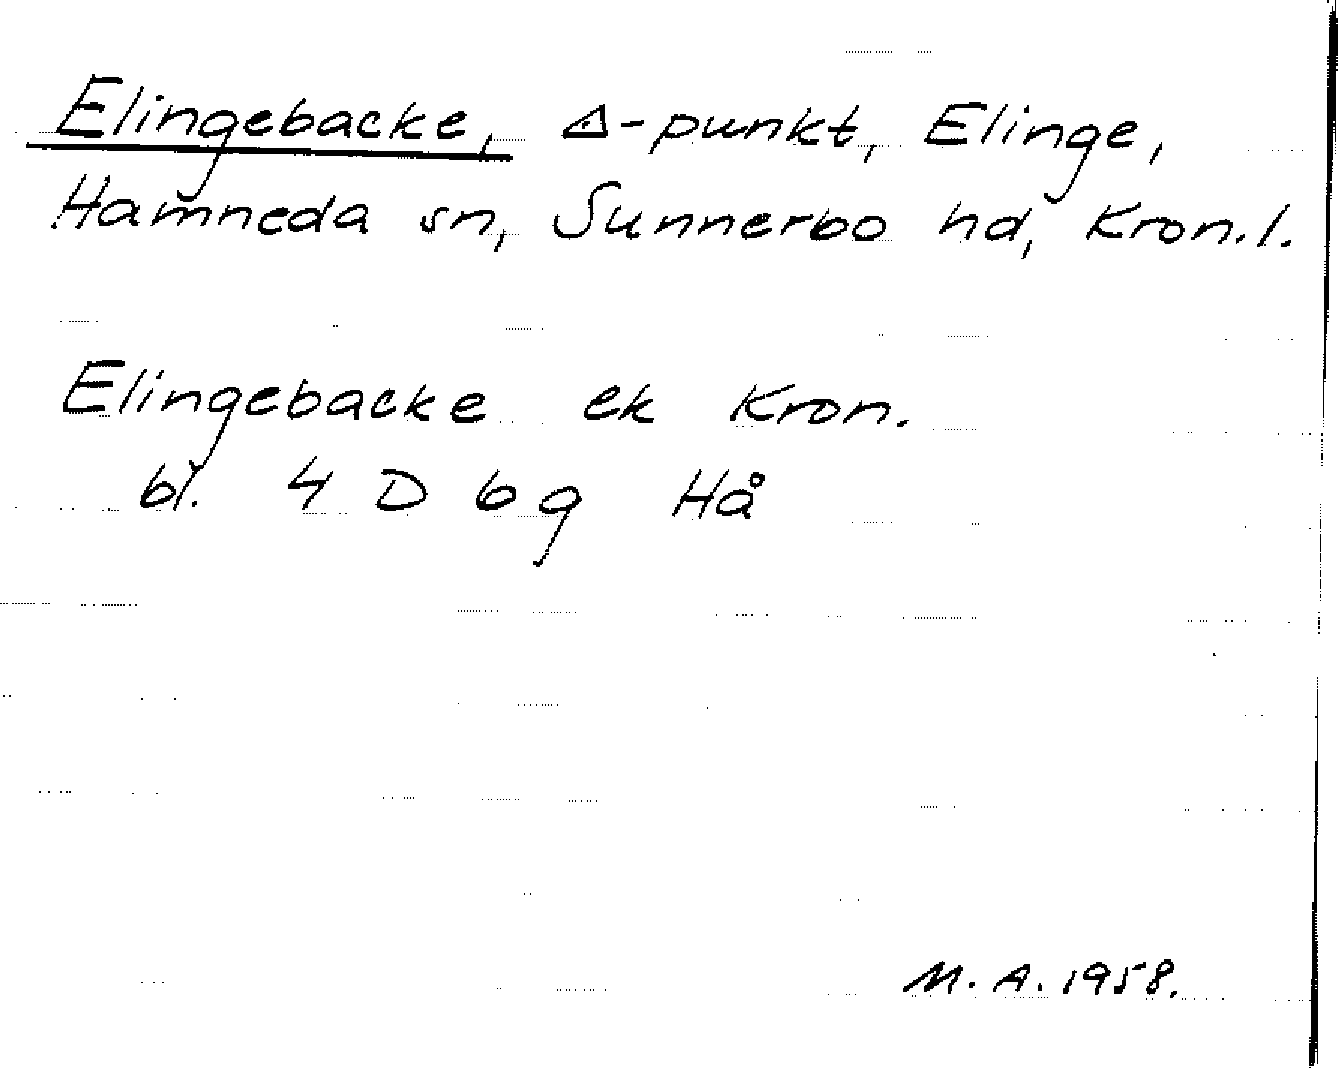 Elingebacke, △-punkt, Elinge,
Hamneda sn, Sunnerbo hd, Kron.l.
Elingebacke ek Kron.
bl. 4 D 6 g Hå
M. A. 1958.